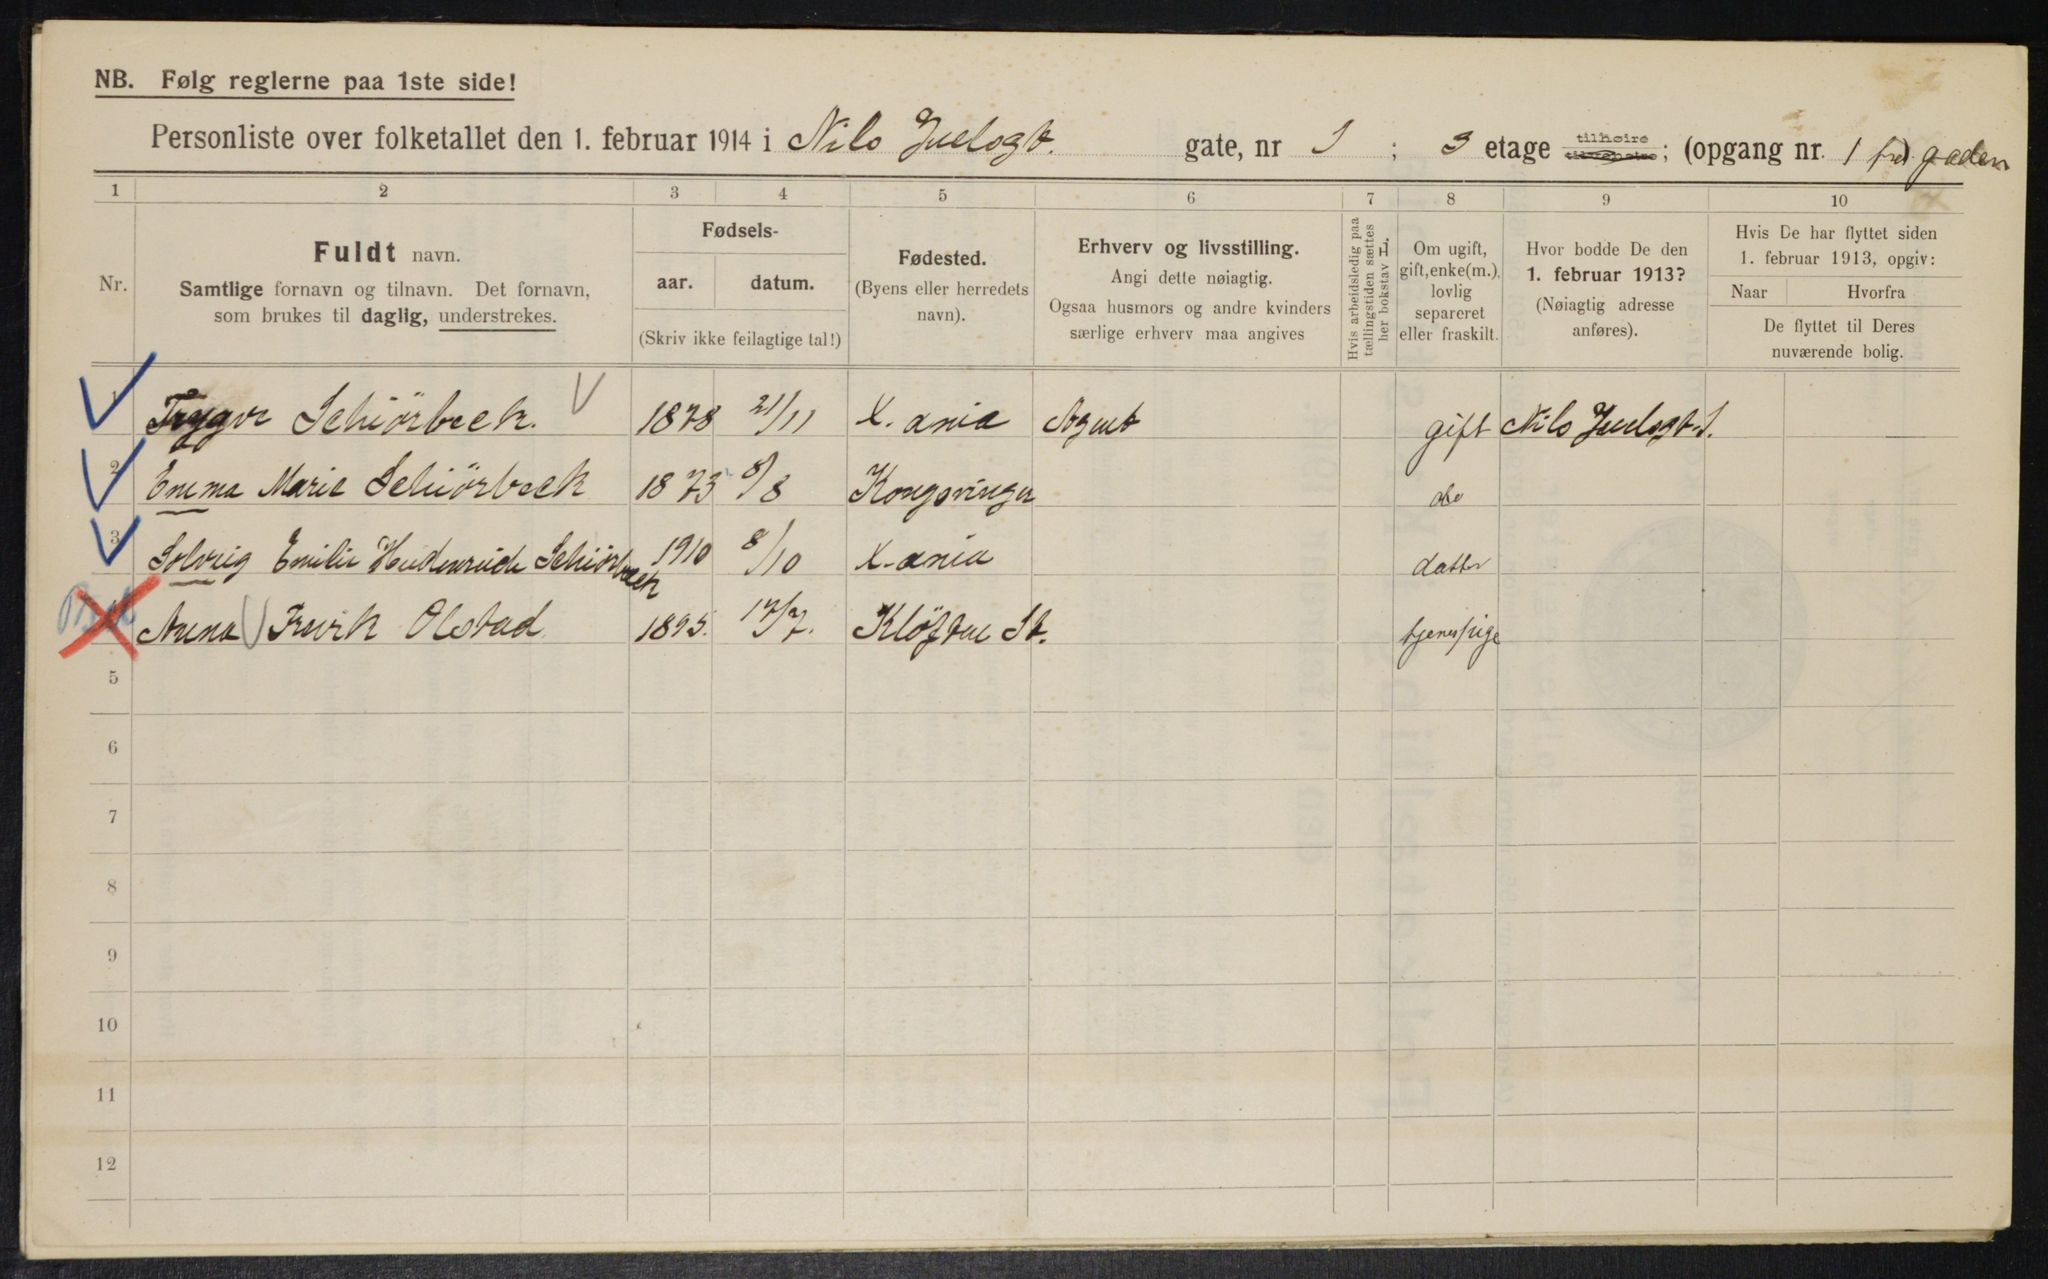 NB. Følg reglerne paa 1ste side!
Personliste over folketallet den 1. februar 1914 i Nils Juelsgt. gate, nr 1 ; 3 etage tilhøire ; (opgang nr. 1 fra gaden
1 2 3 4 5 6 7 8 9 10
Nr.
Fuldt navn.
Samtlige fornavn og tilnavn. Det fornavn,
som brukes til daglig, understrekes.
Fødsels-
aar. datum.
(Skriv ikke feilagtige tal!)
Fødested.
(Byens eller herredets
navn).
Erhverv og livsstilling.
Angi dette nøiagtig.
Ogsaa husmors og andre kvinders
særlige erhverv maa angives
Hvis arbeidsledig paa
tællingstiden sættes
her bokstav L.
Om ugift,
gift, enke(m.),
lovlig
separeret
eller fraskilt.
Hvor bodde De den
1. februar 1913?
(Nøiagtig adresse
anføres).
Hvis De har flyttet siden
1. februar 1913, opgiv:
Naar Hvorfra
De flyttet til Deres
nuværende bolig.
1 Trygve Schiörbeck. 1878 21/11 X.ania Agent gift Nils Juelsgt. 1.
2 Emma Marie Schiörbeck 1873 8/8 Kongsvinger do
3 Solveig Emilie Schiörbeck 1910 8/10 X.ania datter
Anna Olstad 1895. 17/7. Klöften St. tjenespige
5
6
7
8
9
10
11
12